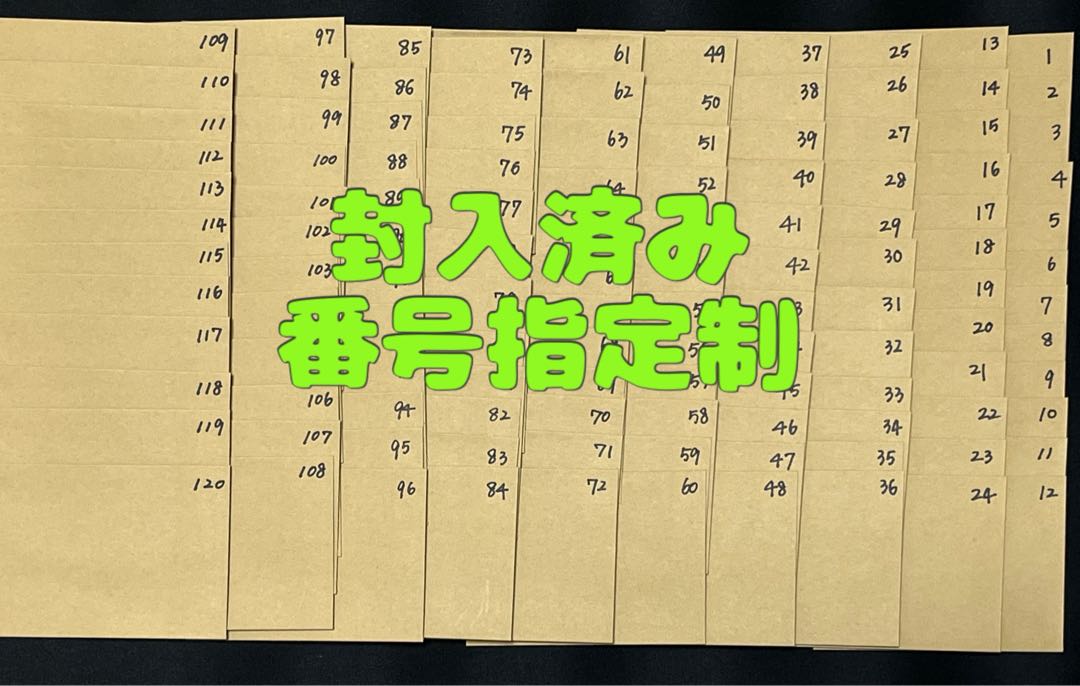 109 97 85 73 61 49 37 25 13 1
110 98 86 74 62 50 38 26 14 2
111 99 87 75 63 51 39 27 15 3
112 100 88 76 64 52 40 28 16 4
113 101 89 77 41 29 17 5
114 102 42 30 18 6
封入済み
115 103 31 19 7
116 32 20 8
番号指定制
117 33 21 9
118 106 94 82 70 58 46 34 22 10
119 107 95 83 71 59 47 35 23 11
120 108 96 84 72 60 48 36 24 12